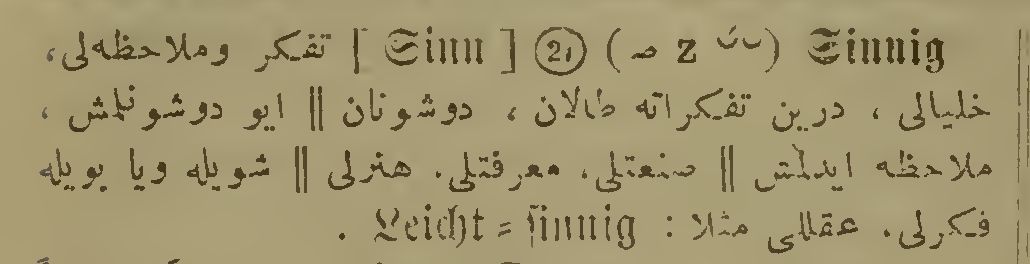 Sinnig (ص z ـنـ) ② [ Sinn ] تفكر وملاحظه‌لی،
خلیالی ، درین تفكراته طالان ، دوشونان || ایو دوشونلمش ،
ملاحظه ایدلمش || صنعتلی، معرفتلی، هنرلی || شویله ویا بویله
فكرلی، عقللی مثلا : Leicht=sinnig .